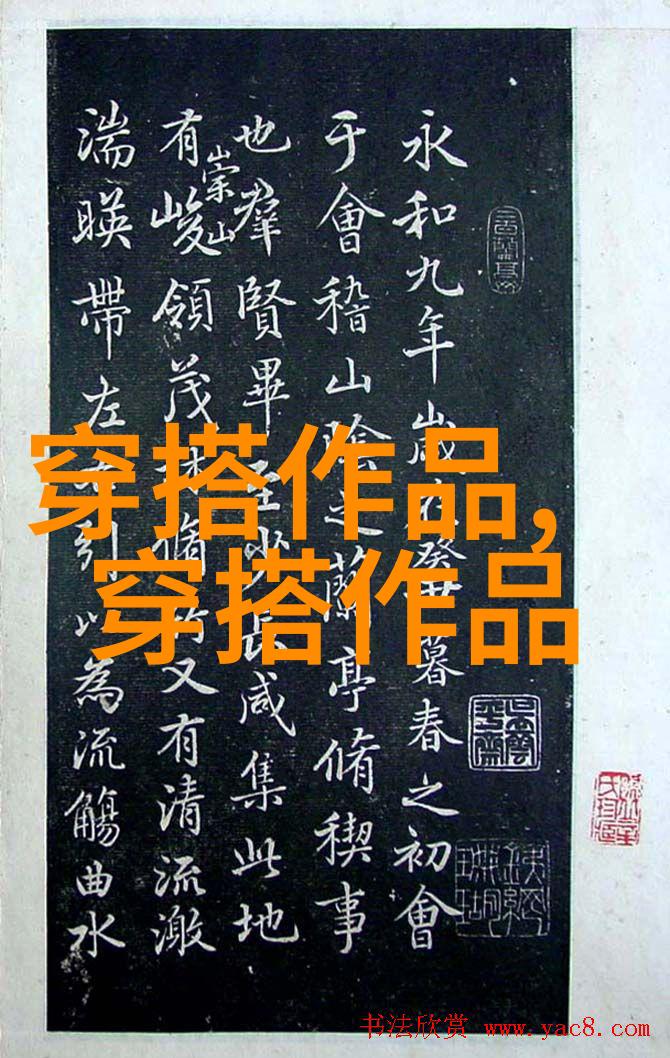 永和九年歲在癸丑暮春之初會
于會稽山陰之蘭亭脩稧事
也羣賢畢至少長咸集此地
有崇山峻領茂林脩竹又有清流激
湍暎帶左右引以為流觴曲水
穿搭作品,
穿搭作品
书法欣赏 www.yac8.com